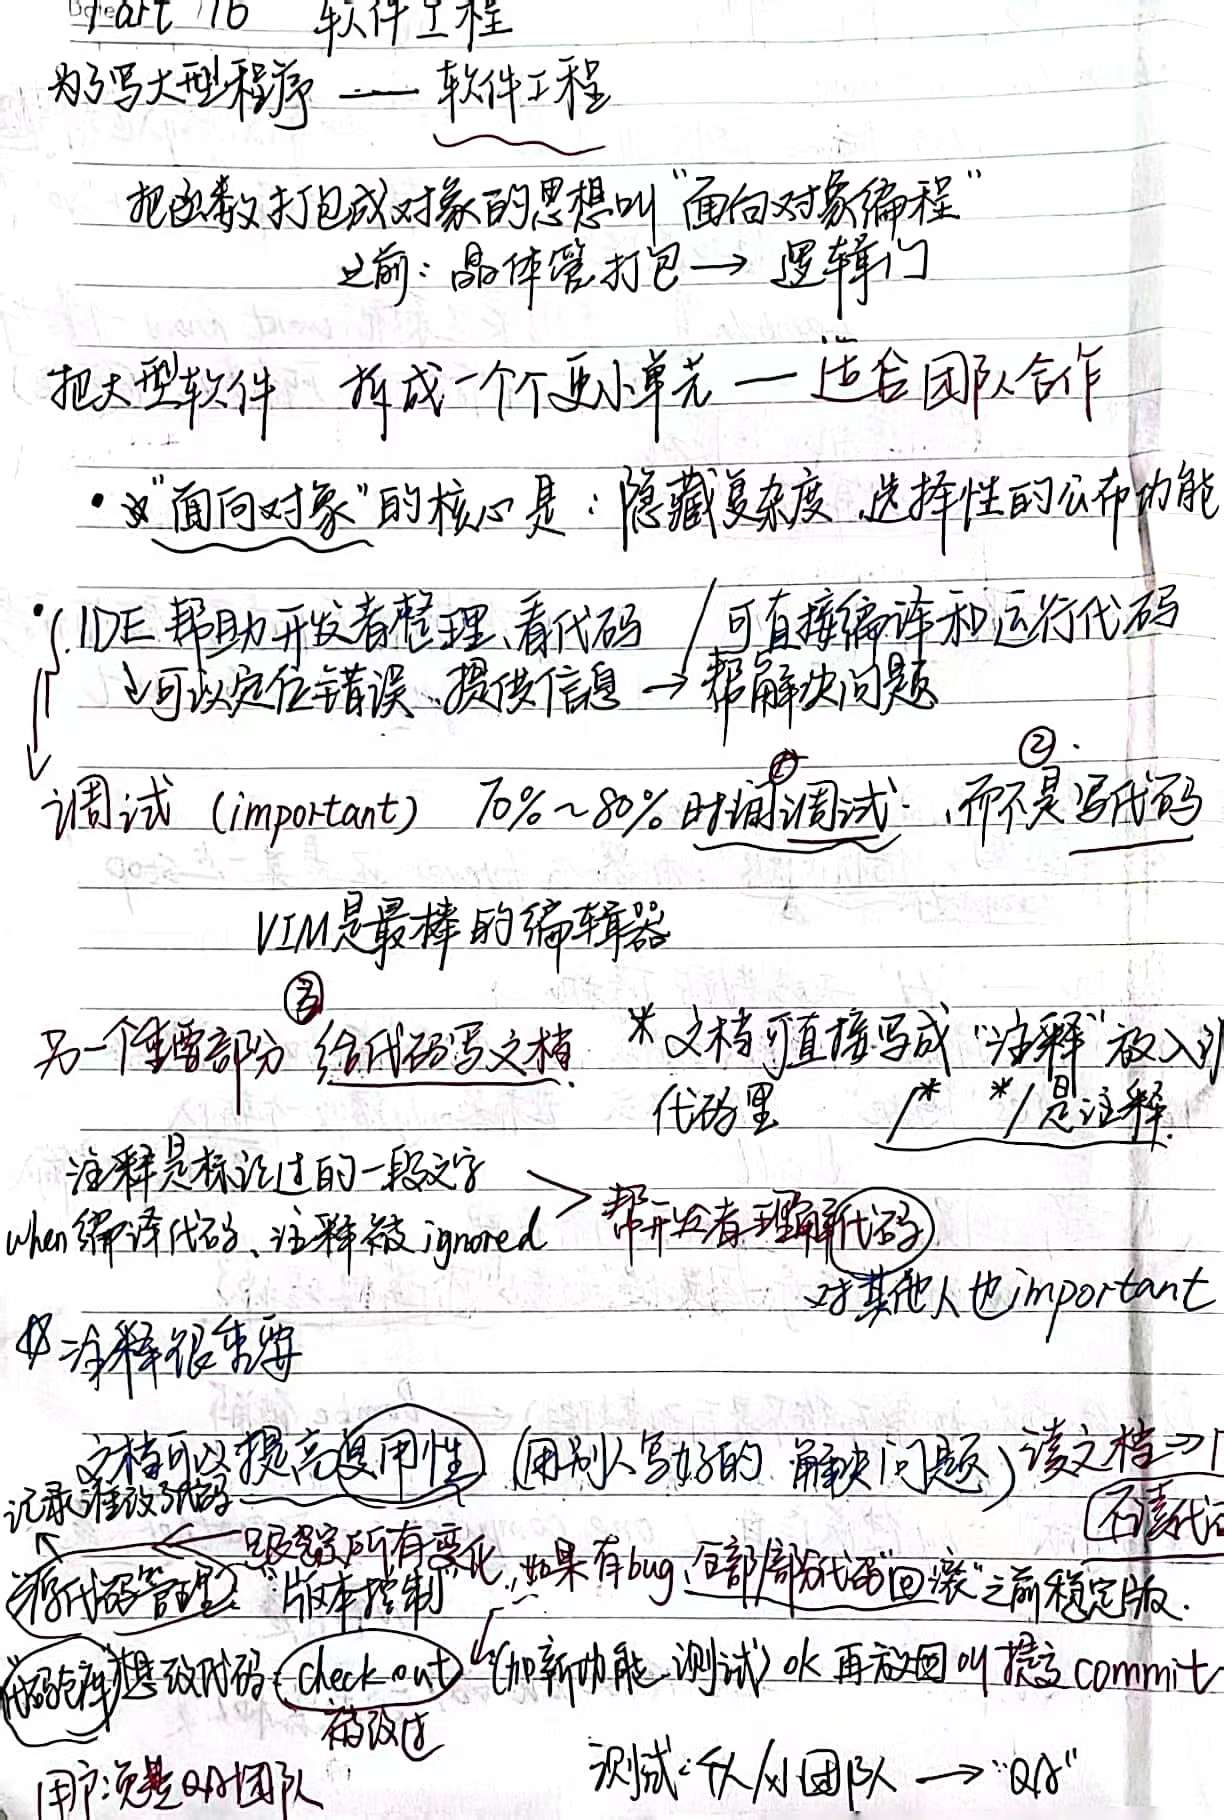 Part 16 软件工程
为了写大型程序 —— 软件工程
把函数打包成对象的思想叫"面向对象编程"
之前：晶体管打包 → 逻辑门
把大型软件 拆成一个个更小单元 — 适合团队合作
• "面向对象"的核心是：隐藏复杂度、选择性的公布功能
• IDE 帮助开发者整理、看代码 / 可直接编译和运行代码
↳可以定位错误、提供信息 → 帮解决问题
① ②
调试 (important) 70%～80% 时间调试，而不是写代码
VIM是最棒的编辑器
③
另一个重要部分 给代码写文档 * 文档可直接写成"注释"放入
代码里 /* */是注释
注释是标记过的一段文字
when编译代码、注释被ignored > 帮开发者理解代码
对其他人也important
注释很重要
文档可以提高复用性 (用别人写好的 解决问题) 读文档 →
记录谁改了代码 不读代
← 跟踪所有变化，如果有bug、全部/部分代码"回滚"之前稳定版.
源代码管理："版本控制
代码仓库 想改代码：check out (加新功能、测试) ok 再放回 叫提交commit
被改过
测试：个人/小团队 → "QA"
QA团队